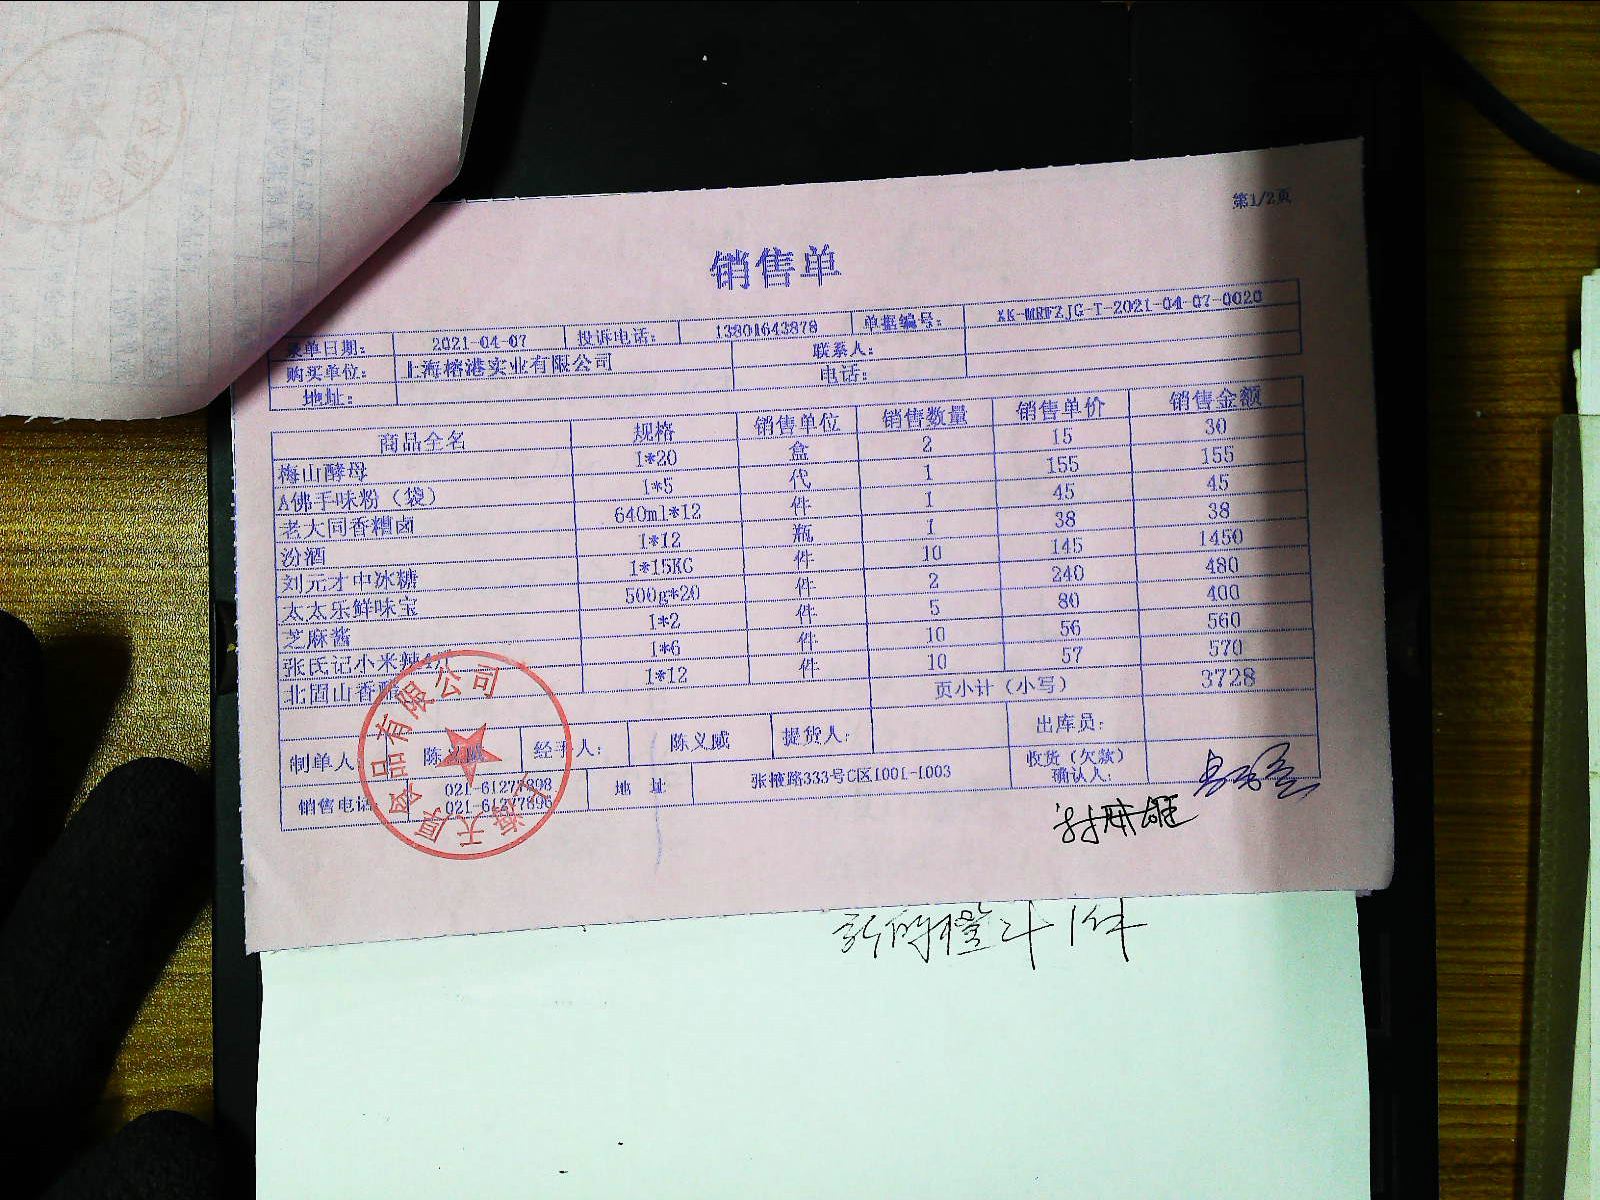 第1/2页
销售单
录单日期： 2021-04-07 投诉电话： 13801643878 单据编号： XK-MRFZJG-T-2021-04-07-0020
购买单位： 上海榕港实业有限公司 联系人：
地址： 电话：
商品全名 规格 销售单位 销售数量 销售单价 销售金额
梅山酵母 1*20 盒 2 15 30
A佛手味粉（袋） 1*5 代 1 155 155
老大同香糟卤 640ml*12 件 1 45 45
汾酒 1*12 瓶 1 38 38
刘元才中冰糖 1*15KG 件 10 145 1450
太太乐鲜味宝 500g*20 件 2 240 480
芝麻酱 1*2 件 5 80 400
张氏记小米辣 1*6 件 10 56 560
北固山香醋 1*12 件 10 57 570
页小计（小写） 3728
制单人： 陈义威 经手人： 陈义威 提货人： 出库员：
销售电话 021-61277898 地 址 张掖路333号C区1001-1003 收货（欠款）
021-61277896 确认人：
上海天厚食品有限公司
新的橙汁1件